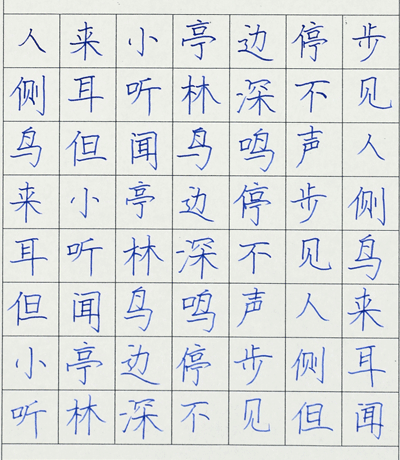 人来小亭边停步
侧耳听林深不见
鸟但闻鸟鸣声人
来小亭边停步侧
耳听林深不见鸟
但闻鸟鸣声人来
小亭边停步侧耳
听林深不见但闻